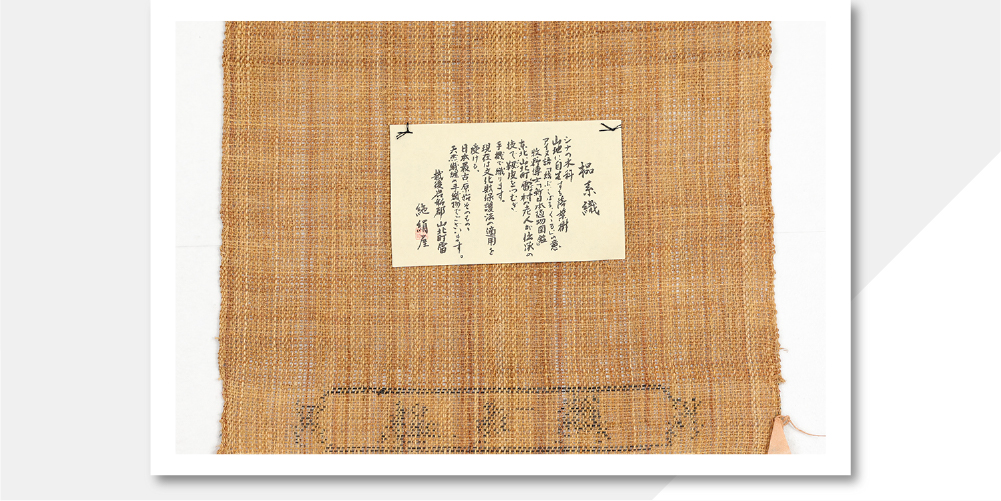 榀糸織
シナの木科
山地に自生する落葉樹
アイヌ語「結ぶ、しばる、くくる」の意
牧野博士「新日本植物図鑑」
東北山北町雷村の老人が伝承の
技で靱皮をつむぎ
手機で織ります。
現在は文化財保護法の適用を
受ける。
日本最古、原始そのもの
天然繊維の手織物でございます。
越後岩船郡 山北町雷
絁絹屋